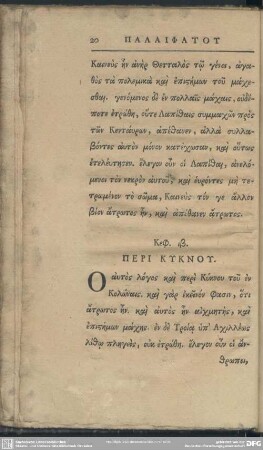 20 ΠΑΛΑΙΦΑΤΟΥ
Καινεὺς ἦν ἀνὴρ Θετταλὸς τῷ γένει, ἀγα-
θὸς τὰ πολεμικὰ καὶ ἐπιςήμων τοῦ μάχε-
σθαι. γενόμενος δὲ ἐν πολλαῖς μάχαις, οὐδέ-
ποτε ἐτρώθη, οὔτε Λαπίθαις συμμαχῶν πρὸς
τοὺς Κενταύρους, ἀπέθανεν, ἀλλὰ συλλα-
βόντες αὐτὸν μόνον κατέχωσαν, καὶ οὕτως
ἐτελεύτησεν. ἔλεγον οὖν οἱ Λαπίθαι, ἀνελό-
μενοι τὸν νεκρὸν αὐτοῦ, καὶ εὑρόντες μὴ τε-
τρωμένον τὸ σῶμα, Καινεὺς τόν γε ἄλλον
βίον ἄτρωτος ἦν, καὶ ἀπέθανεν ἄτρωτος.
Κεφ. ιβ.
ΠΕΡΙ ΚΥΚΝΟΥ.
Ὁ αὐτὸς λόγος καὶ περὶ Κύκνου τοῦ ἐν
Κολώναις. καὶ γὰρ ἐκεῖνόν φασιν, ὅτι
ἄτρωτος ἦν. καὶ αὐτὸς ἦν αἰχμητὴς, καὶ
ἐπιςήμων μάχης. ἐν δὲ Τροίᾳ ὑπ' Ἀχιλλέως
λίθῳ πληγεὶς, οὐκ ἐτρώθη. ἔλεγον οὖν οἱ ἄν-
θρωποι,